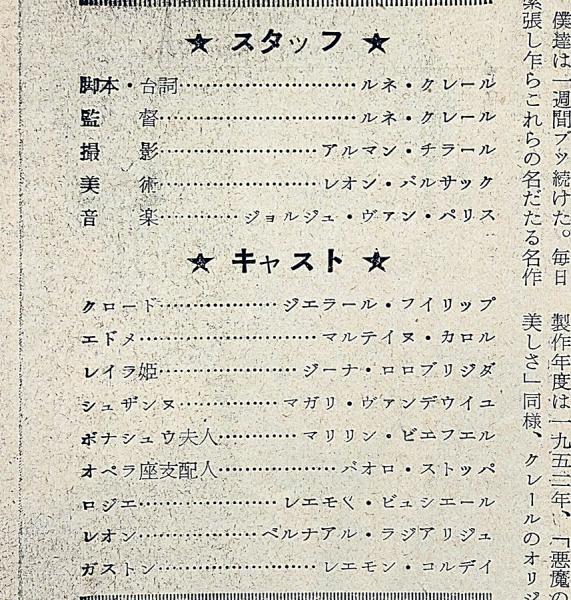 ★ スタッフ ★
脚本・台詞……………………ルネ・クレール
監　督……………………ルネ・クレール
撮　影……………………アルマン・チラール
美　術……………………レオン・バルサック
音　楽…………ジョルジュ・ヴァン・パリス
★ キャスト ★
クロード……………ジエラール・フイリップ
エドメ……………………マルテイヌ・カロル
レイラ姫………………ジーナ・ロロブリジダ
シュザンヌ…………マガリ・ヴァンデウイユ
ボナシュウ夫人…………マリリン・ビエフエル
オペラ座支配人……………パオロ・ストッパ
ロジエ………………レエモン・ビュシエール
レオン………………ベルナアル・ラジアリジュ
ガストン…………………レエモン・コルデイ
僕達は一週間ブッ続けた。毎日
緊張し乍らこれらの名だたる名作
製作年度は一九五二年、「悪魔の
美しさ」同様、クレールのオリジ